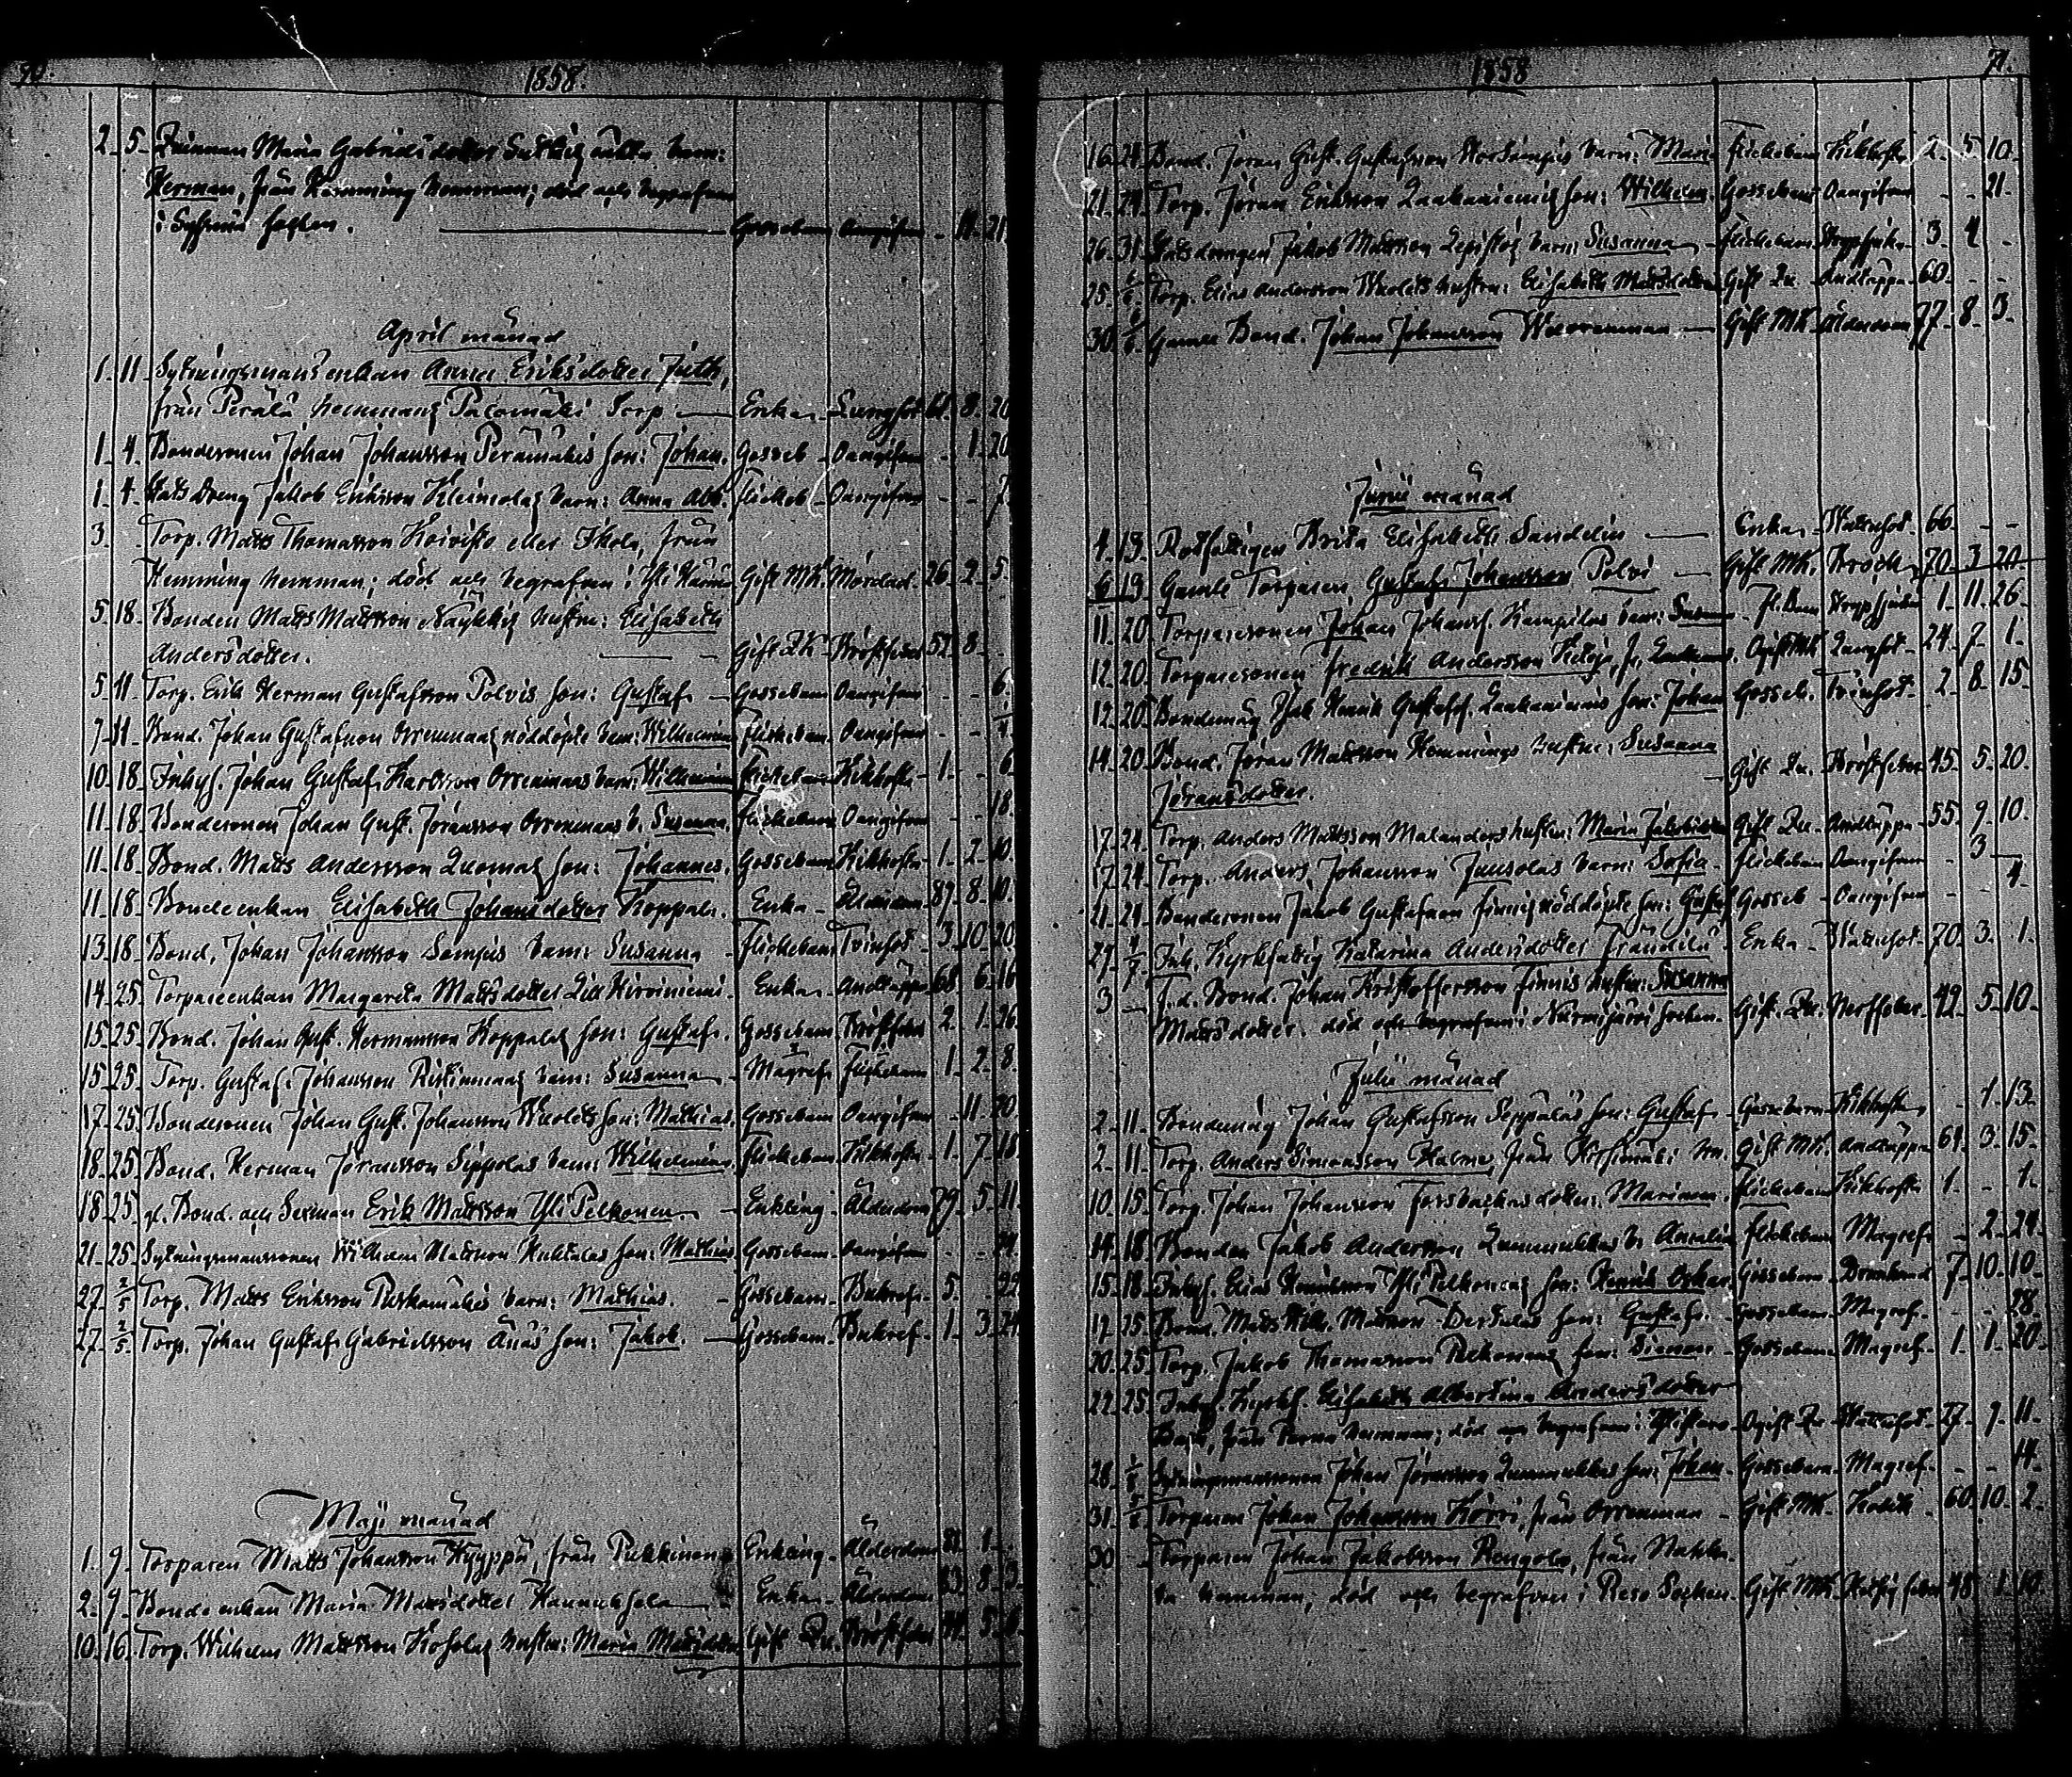 70.
1858.
2. 5. Maria Gabrielsdotter barn:
Herman, från Hemming hemman; död och begrafven
i socken. Gossebarn Oangifven - 11. 21.
April månad
1. 11. Sytningsmans enkan Anna Eriksdotter Juth,
från Perälä hemmans Palomäki Torp Enka Lungsot 61. 8. 20
1. 4. Bondesonen Johan Johansson Perämäkis son: Johan. Gosseb Oangifven - 1. 20
1. 4. Stats Dreng Jakob Eriksson barn: Anna Alb. Flickeb Oangifven - - 7.
3. Torp. Matts Thomasson Koivisto eller Ikola, från
Hemming hemman; död och begrafven i Gift MK. Mördad. 26. 2. 5.
5. 18. Bonden Matts Mattsson hustru: Elisabeth
Andersdotter. Gift 52. 8. -
5. 11. Torp. Erik Herman Gustafsson Polvis son: Gustaf Gossebarn Oangifven - - 6.
7. 11. Bond. Johan Gustafsson Orrenmaas nöddöpte barn: Wilhelmina Flickebarn Oangifven - -
10. 18. Inhys. Johan Gustaf Karlsson Orrenmaas barn: Wilhelmina Flickebarn Kikhosta 1. - 6.
11. 18. Bondesonen Johan Gust. Göransson Orrenmaas b. Susanna. Flickebarn Oangifven - - 18.
11. 18. Bond. Matts Andersson Luomas son: Johannes. Gossebarn Kikhosta 1. 2. 10.
11. 18. Bondeenkan Elisabeth Johansdotter Koppala. Enka Ålderdom 87. 8. 10.
13. 18. Bond. Johan Johansson barn: Susanna Flickebarn Tvinsot 3. 10. 20
14. 25. Torpareenkan Margareta Mattsdotter Kiviniemi. Enka Andtäppa 68. 6. 16
15. 25. Bond. Johan Gust. Hermansson Koppalas son: Gustaf. Gossebarn Bröstfeber 2. 1. 26
15. 25. Torp. Gustaf Johansson Ristinmaas barn: Susanna Magref Flickebarn 1. 2. 8.
17. 25. Bondesonen Johan Gust. Johansson son: Mathias. Gossebarn Oangifven - 11. 20
18. 25. Bond. Herman Göransson Seppäläs barn: Wilhelmina. Flickebarn Kikhosta 1. 7. 18
18. 25. gl. Bond. och Sexman Erik Mattsson Yli Pelkonen. Enkling Ålderdom 79. 5. 11.
21. 25. Sytningsmanssonen Wilhelm Mattsson son: Mathias Gossebarn Oangifven - -
27. 2/5 Torp. Matts Eriksson Puskamäkis barn: Mathias. Gossebarn Bukref 5. - 22
27. 2/5 Torp. Johan Gustaf Gabrielsson Ånäs son: Jakob. Gossebarn Bukref 1. 3. 24
Maji månad
1. 9. Torparen Matts Johansson Kyyppä, från Pukkinen Enkling Ålderdom 1.
2. 9. Bonde enkan Maria Mattsdotter Hannuksela Enka Ålderdom 83. 8. 3.
10. 16. Torp. Wilhelm Mattsson hustru: Maria Mattsdotter Gift Qu. Bröstfeber 44. 5. 6.
1858
71.
16. 24. Bond. Göran Gust. Gustafsson barn: Maria Flickebarn Kikhosta 2. 5. 10.
21. 24. Torp. Göran Eriksson Laakaniemis son: Wilhelm. Gossebarn Oangifven - - 21.
26. 31. Statsdrengen Jakob Mattsson Lepistös barn: Susanna Flickebarn Strypsjuka 3. 4. -
25. 6/6. Torp. Elias Andersson hustru: Elisabeth Mattsdotter Gift Qu. Andtäppa 60. - -
30. 6/6. Gamle Bond. Johan Johansson Wuorenmaa Gift MK. Ålderdom 77. 8. 3.
Junii månad
4. 13. Rotfattigen Brita Elisabeth Sandelin Enka Wattusot 66. - -
6. 13. Gamle Torparen Gustaf Johansson Polvi Gift MK. Bråck 70. 3. 20
11. 20. Torparesonen Johan Johanss. Kampilas barn: Susanna Fl. Barn Strypsjuka 1. 11. 26.
12. 20. Torparesonen Fredrik Andersson Ogift MK Lungsot 24. 7. 1.
12. 20. Bondemåg Isak Henrik Gustafss. Laakaniemis son: Johan Gosseb. Tvinsot 2. 8. 15.
14. 20. Bond. Göran Mattsson Hemmings hustru: Susanna
Göransdotter. Gift Qu. Bröstfeber 45. 5. 20.
17. 24. Torp. Anders Mattsson Malanders hustru: Maria Jakobsdotter Gift Qu. Andtäppa 55. 9. 10.
17. 24. Torp. Anders Johansson Juusolas barn: Sofia Flickebarn Oangifven - 3 -
21. 24. Bondesonen Jakob Gustafsson Finnis nöddöpte son: Gustaf Gosseb Oangifven - - 4.
27. 4/7 Inh. Kyrkfattig Katarina Andersdotter Frändilä Enka Wattusot 70. 3. 1.
3 - f.d. Bond. Johan Kristoffersson Finnis hustru: Susanna
Mattsdotter. död och begrafven i Nurmijärvi socken. Gift. Qu. Nerffeber 42. 5. 10.
Julii månad
2. 11. Bondemåg Johan Gustafsson Seppäläs son: Gustaf Gossebarn Kikhosta - 1. 13.
2. 11. Torp. Anders Simonsson Halme, från hn. Gift MK. Andtäppa 61. 3. 15.
10. 15. Torp. Johan Johansson Forsbackas dotter: Mariana. Flickebarn Kikhosta 1. - 1.
14. 18. Bonden Jakob Andersson Lummukkas b. Amalia Flickebarn Magref - 2. 24.
15. 18. Inhys. Elias Henriksson Yli Pelkonens son: Henrik Oskar. Gossebarn Drunknad 7. 10. 10.
17. 25. Bond. Matts Wilh. Mattsson son: Gustaf. Gossebarn Magref. - - 28
20. 25. Torp. Jakob Thomasson Pelkonens son: Simon Gossebarn Magref. 1. 1. 20.
22. 25. Inhys. Kyrkf. Elisabeth Albertina Andersdotter
från hemman; död och begrafven i Ogift Qu Wattusot 27. 7. 11.
28. 1/8 Sytningsmanssonen Johan Göransson Lummukkas son: Johan Gossebarn Magref - - 14.
31. 1/8 Torparen Johan Johansson Körri, från Orrenmaa Gift MK. Kolik 60. 10. 2.
30 - Torparen Johan Jakobsson Rengola, från
hemman; död och begrafven i Reso Socken. Gift MK. 48 1. 10